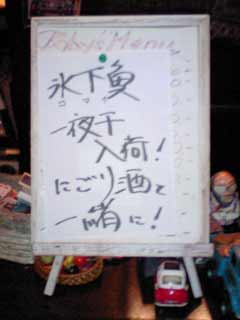 Today's Menu
氷下魚
コマイ
一夜干
入荷!
にごり酒と
一緒に!